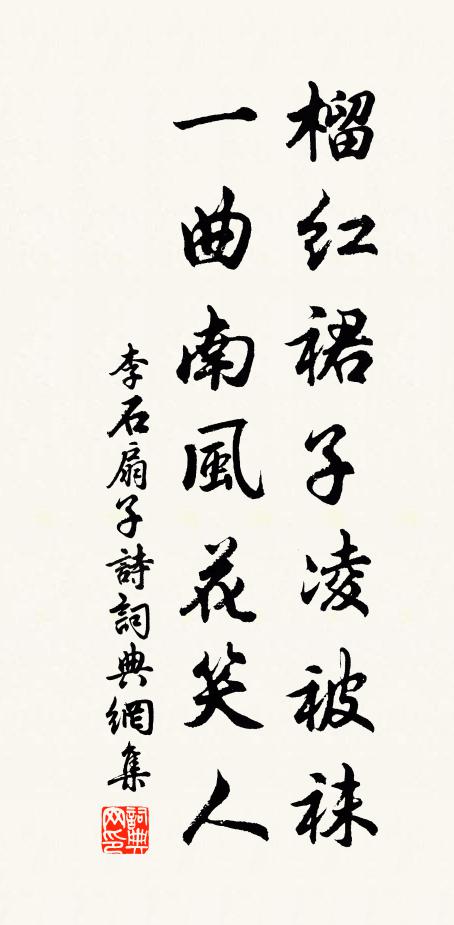 榴紅裙子凌被袜
一曲南風花笑人
李石扇子詩詞典網集
詞典
网印